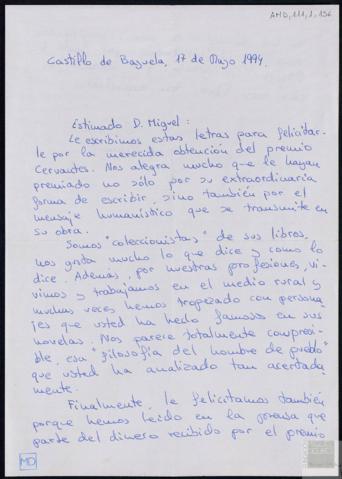 AMD, 111, 1, 156
Castillo de Bayuela, 17 de Mayo 1994.
Estimado D. Miguel:
Le escribimos estas letras para felicitar-
le por la merecida obtención del premio
Cervantes. Nos alegra mucho que le hayan
premiado no sólo por su extraordinaria
forma de escribir, sino también por el
mensaje humanístico que se transmite en
su obra.
Somos "coleccionistas" de sus libros,
nos gusta mucho lo que dice y como lo
dice. Además, por nuestras profesiones, vi-
vimos y trabajamos en el medio rural y
muchas veces hemos tropezado con persona-
jes que usted ha hecho famosos en sus
novelas. Nos parece totalmente compresi-
ble, esa "filosofía del hombre de pueblo"
que usted ha analizado tan acertada
mente.
Finalmente, le felicitamos también
porque hemos leido en la prensa que
parte del dinero recibido por el premio
MD